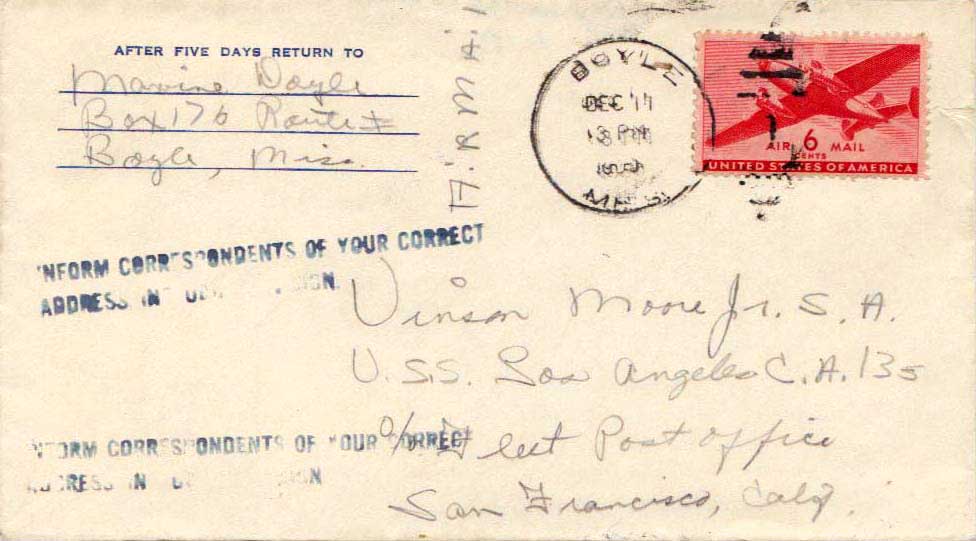 AFTER FIVE DAYS RETURN TO
Maxine Doyle
Box 176 Route I
Boyle, Miss.
AIRMAIL
BOYLE
DEC 11
PM
MISS.
AIR 6 MAIL
CENTS
UNITED STATES OF AMERICA
INFORM CORRESPONDENTS OF YOUR CORRECT
ADDRESS IN
Vinson Moore Jr. S. A.
U.S.S. Los Angeles C.A. 135
c/o Fleet Post Office
San Francisco, Calif.
INFORM CORRESPONDENTS OF YOUR CORRECT
ADDRESS IN